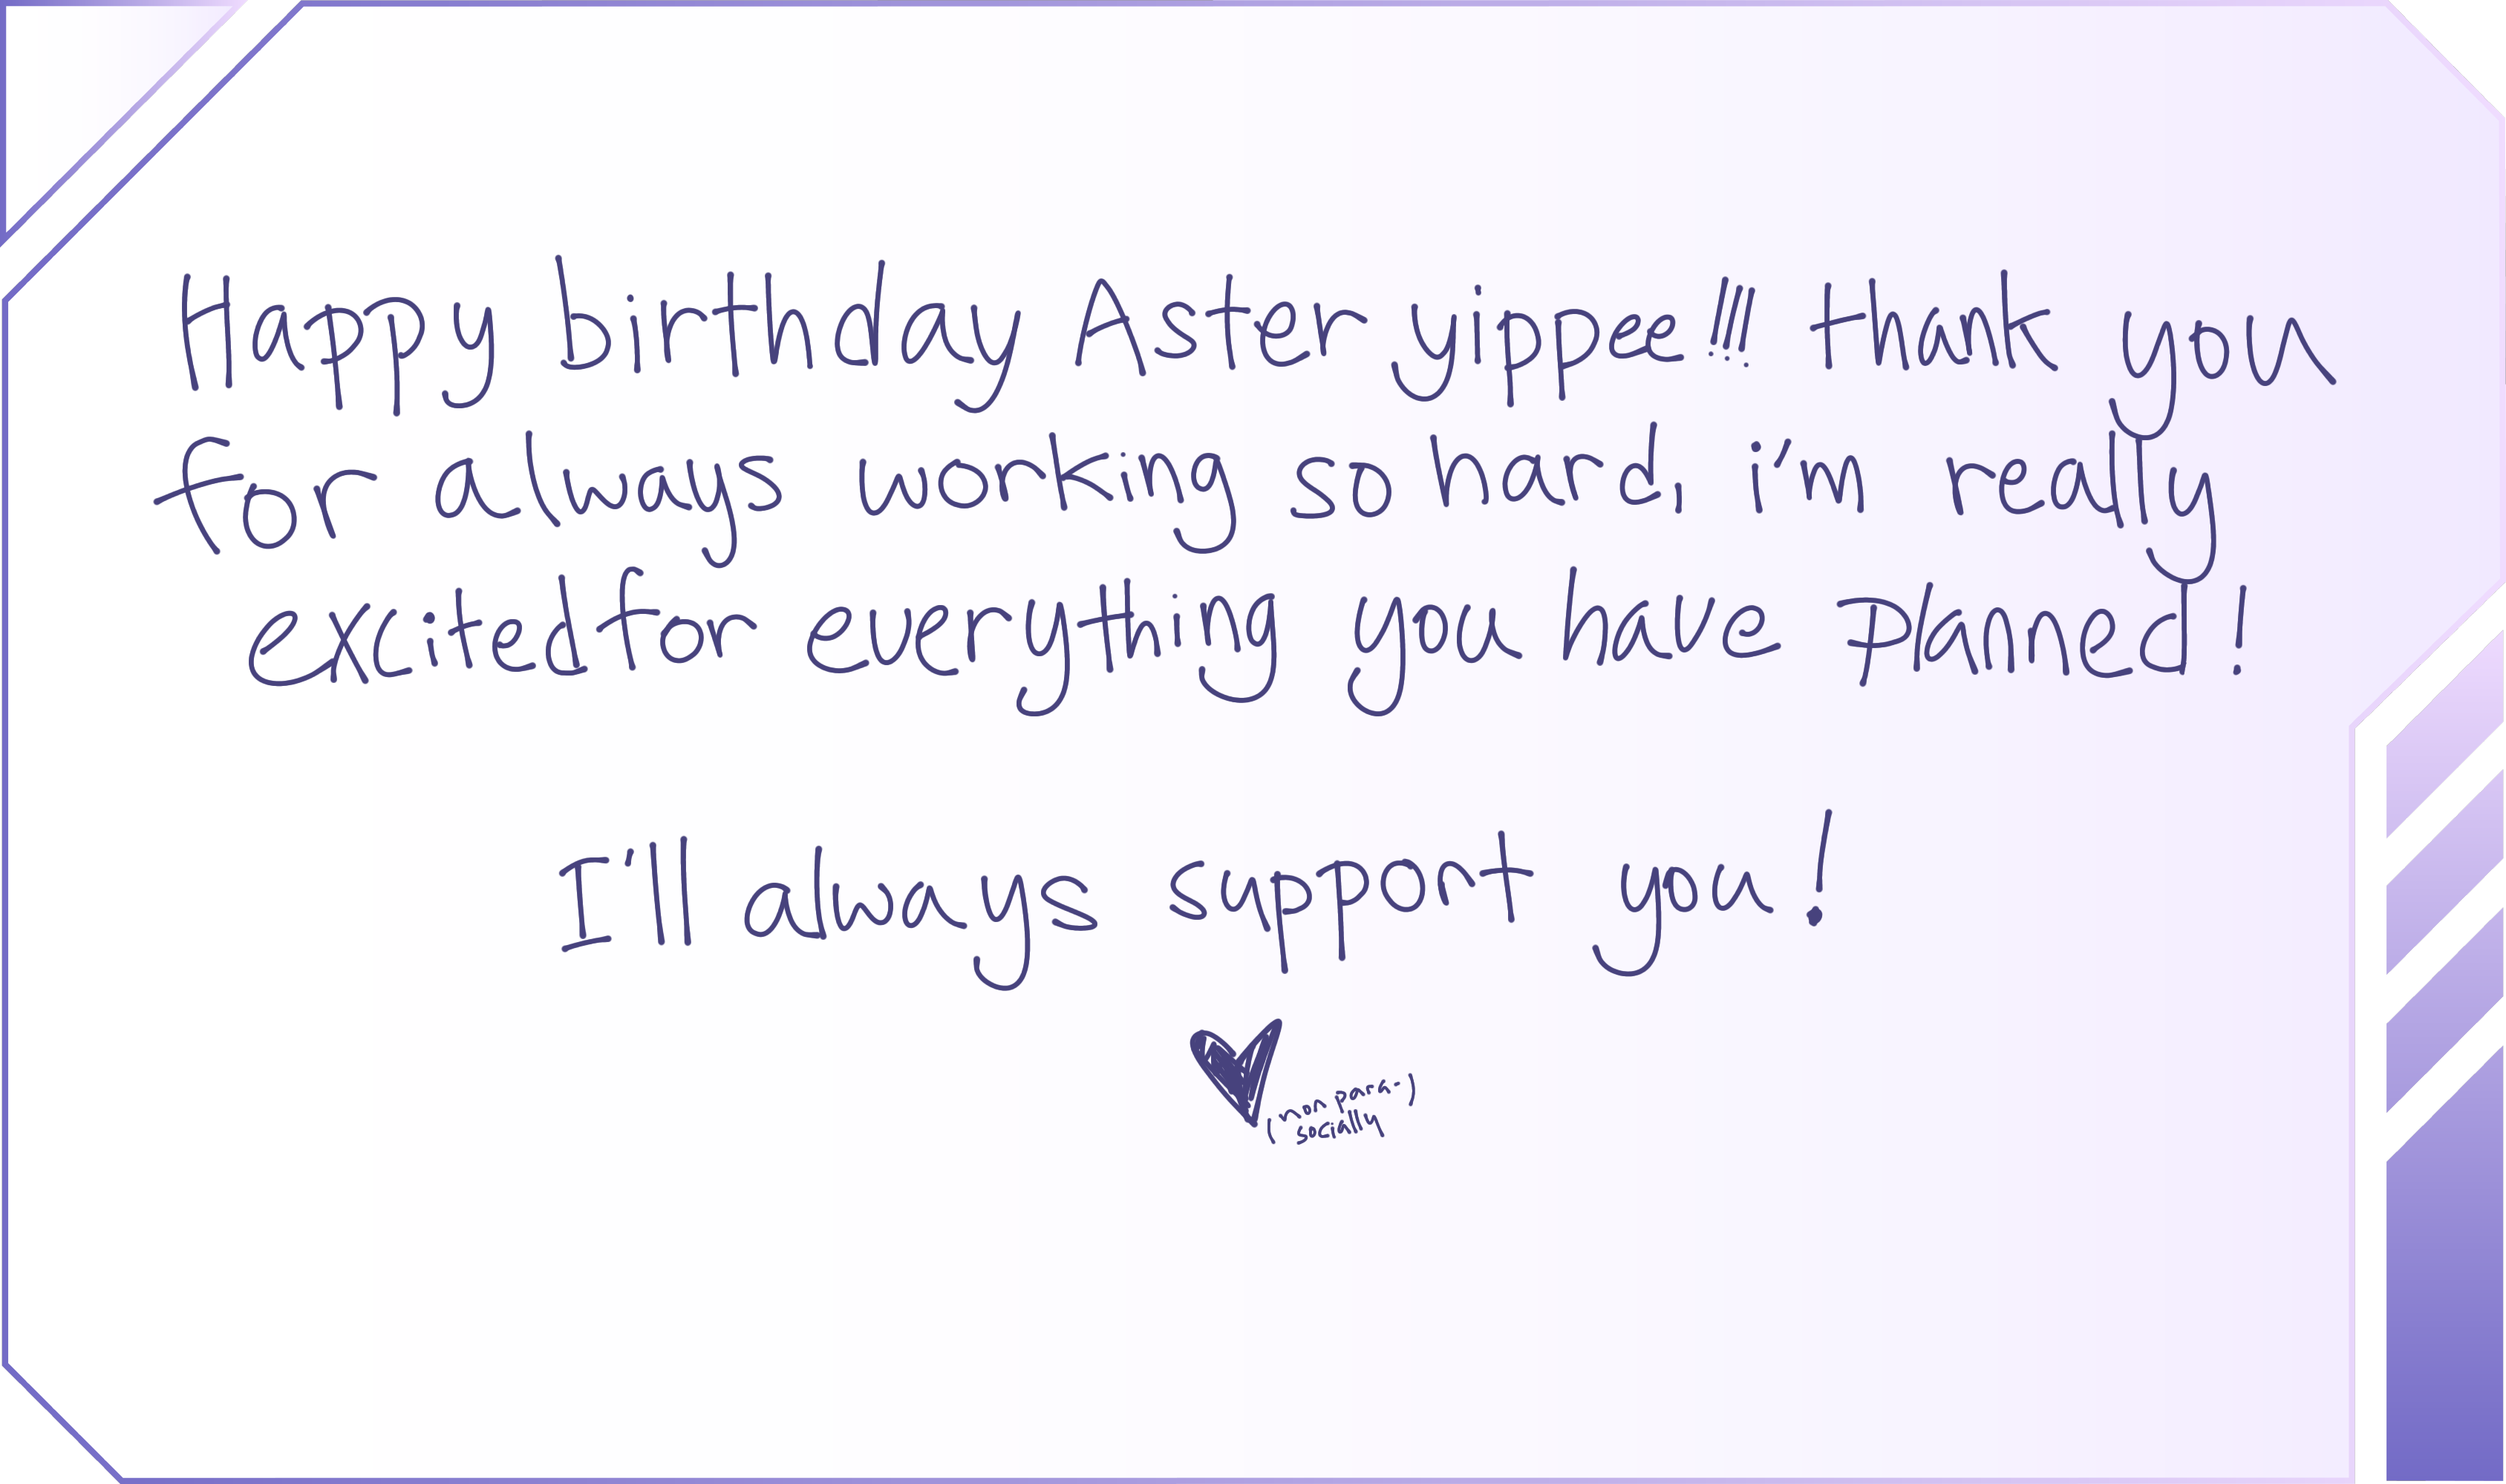 Happy birthday Aster yippee!!! thank you
for always working so hard, i'm really
excited for everything you have Planned!
I'll always support you!
(non para-)
socially